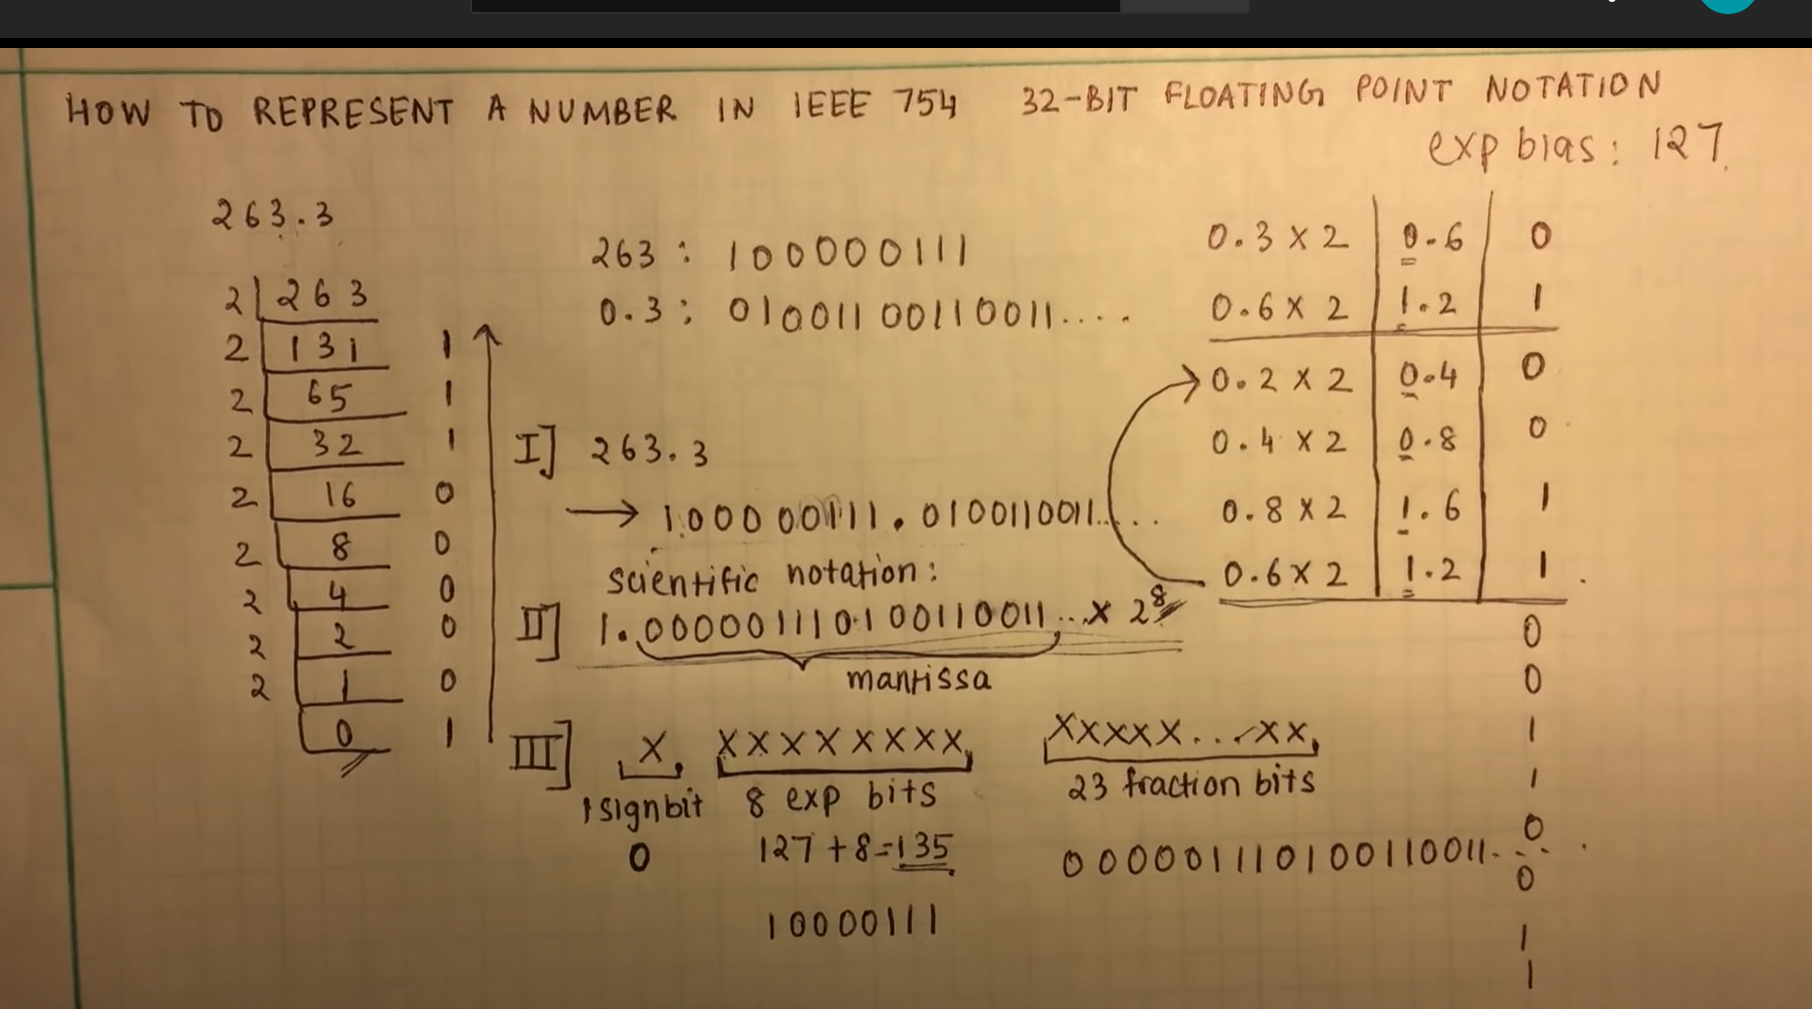 HOW TO REPRESENT A NUMBER IN IEEE 754 32-BIT FLOATING POINT NOTATION
exp bias: 127
263.3
2 263
2 131 1
2 65 1
2 32 1
2 16 0
2 8 0
2 4 0
2 2 0
2 1 0
0 1
263 : 100000111
0.3 : 01001100110011....
I] 263.3
→ 100000111.0100110011.....
scientific notation:
II] 1.000001110100110011...x 2⁸
mantissa
III] X XXXXXXXX XXXXX...XX
1 sign bit 8 exp bits 23 fraction bits
0 127+8=135 000001110100110011...
10000111
0.3 x 2 0.6 0
0.6 x 2 1.2 1
0.2 x 2 0.4 0
0.4 x 2 0.8 0
0.8 x 2 1.6 1
0.6 x 2 1.2 1
0
0
1
1
0
0
1
1